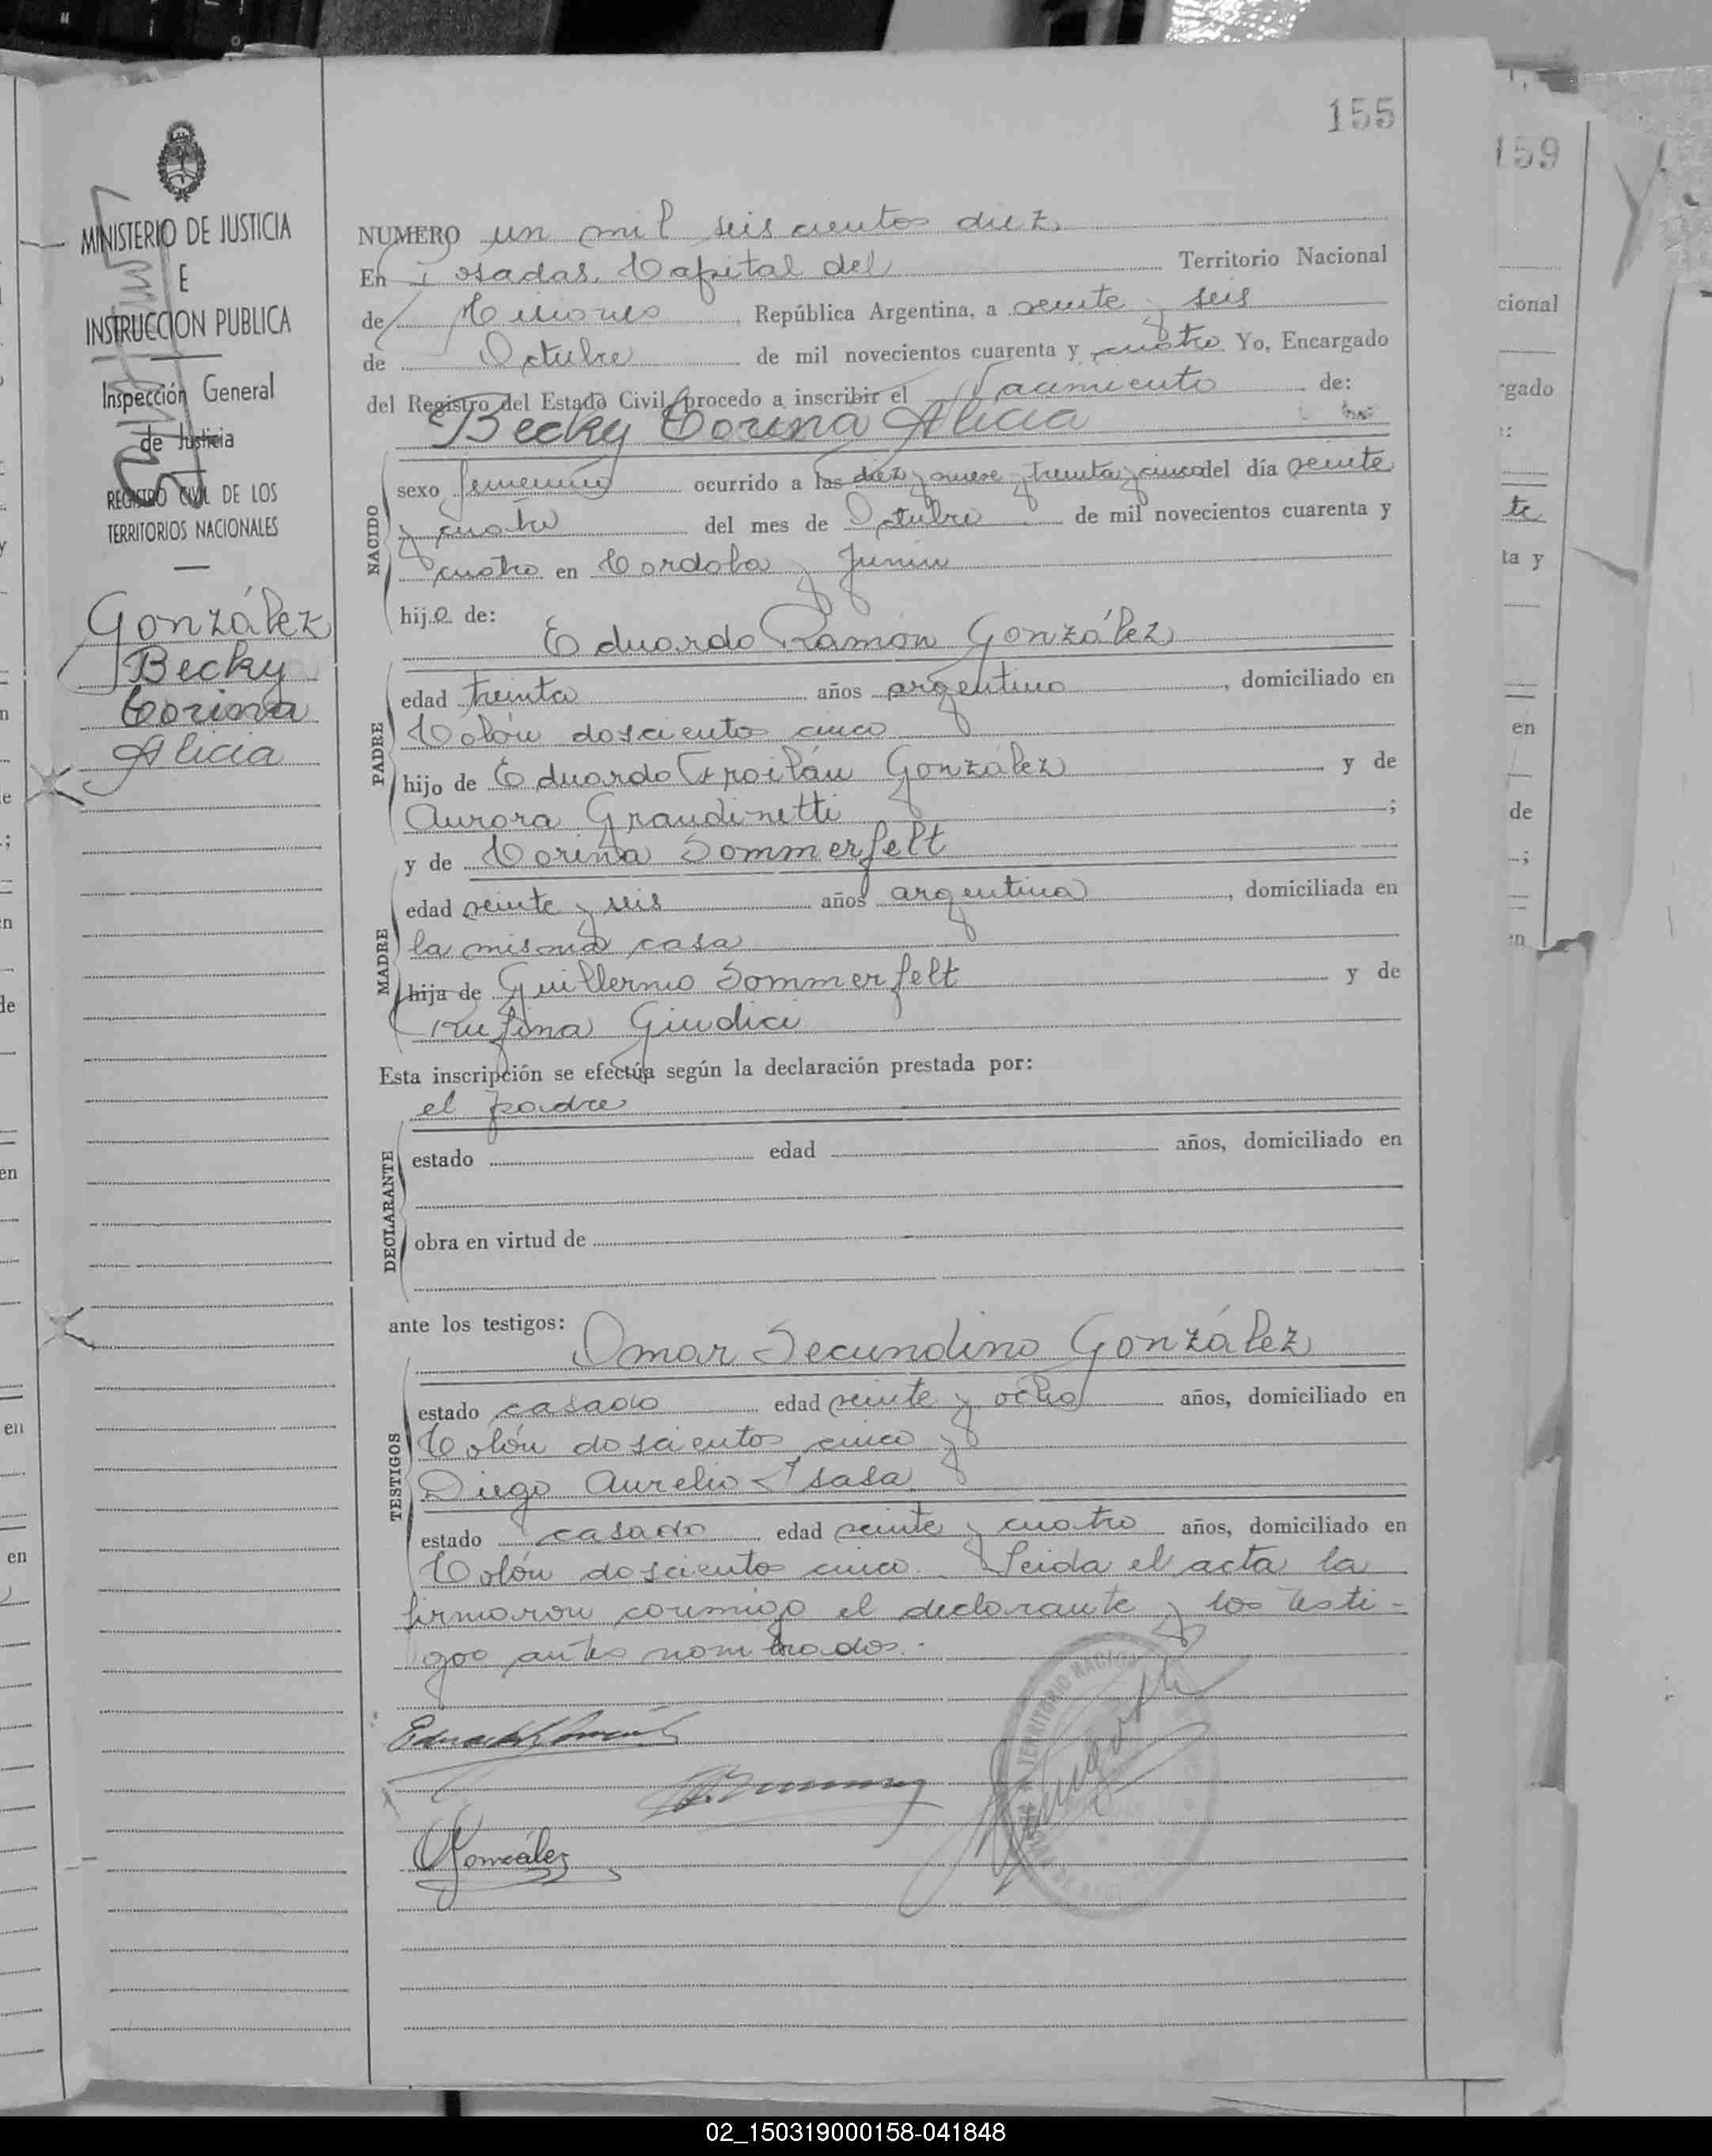 155
159
MINISTERIO DE JUSTICIA
E
INSTRUCCION PUBLICA
Inspección General
de Justicia
REGISTRO CIVIL DE LOS
TERRITORIOS NACIONALES
González
Becky
Corina
Alicia
NUMERO un mil seiscientos diez.
En Posadas, Capital del Territorio Nacional
de Misiones, República Argentina, a veinte y seis
de Octubre de mil novecientos cuarenta y cuatro Yo, Encargado
del Registro del Estado Civil procedo a inscribir el Nacimiento de:
Becky Corina Alicia
NACIDO
sexo femenino ocurrido a las diez y nueve y treinta y cinco del día veinte
y cuatro del mes de Octubre de mil novecientos cuarenta y
cuatro en Cordoba y Junin
hija de:
Eduardo Ramón González
PADRE
edad treinta años argentino, domiciliado en
Colón doscientos cinco
hijo de Eduardo Froilán González y de
Aurora Grandinetti ;
y de Corina Sommerfelt
MADRE
edad veinte y seis años argentina, domiciliada en
la misma casa
hija de Guillermo Sommerfelt y de
Rufina Giudici
Esta inscripción se efectúa según la declaración prestada por:
el padre
DECLARANTE
estado edad años, domiciliado en
obra en virtud de
ante los testigos:
Omar Secundino González
TESTIGOS
estado casado edad veinte y ocho años, domiciliado en
Colón doscientos cinco y
Diego Aurelio Isasa
estado casado edad veinte y cuatro años, domiciliado en
Colón doscientos cinco. Leida el acta la
firmaron conmigo el declarante y los testi-
gos antes nombrados.-
TERRITORIO NACIONAL
González
cional
rgado
te
ta y
en
de
02_150319000158-041848